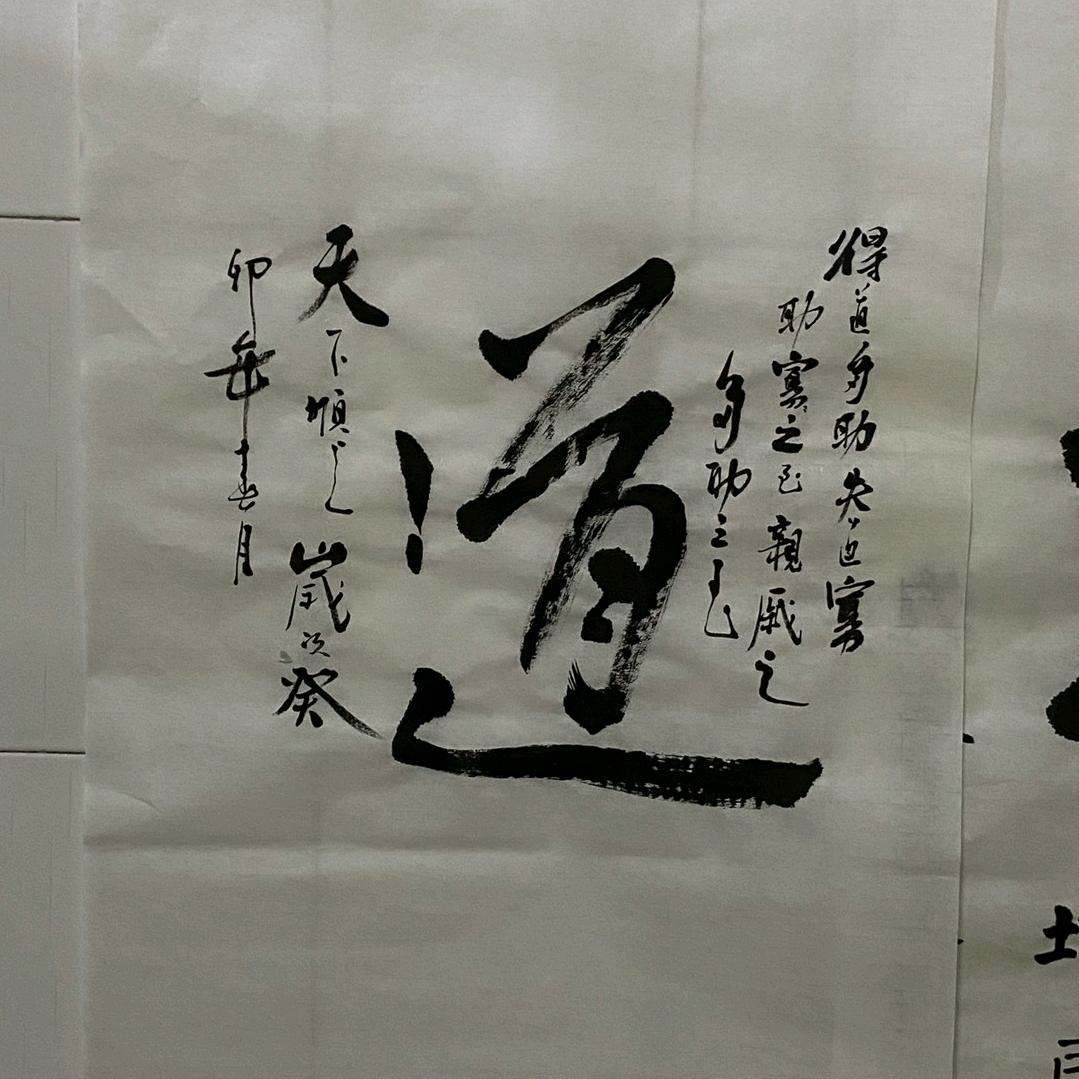 得道多助失道寡
助寡之至親戚之
多助之至
道
天下順之歲次癸
卯年春月